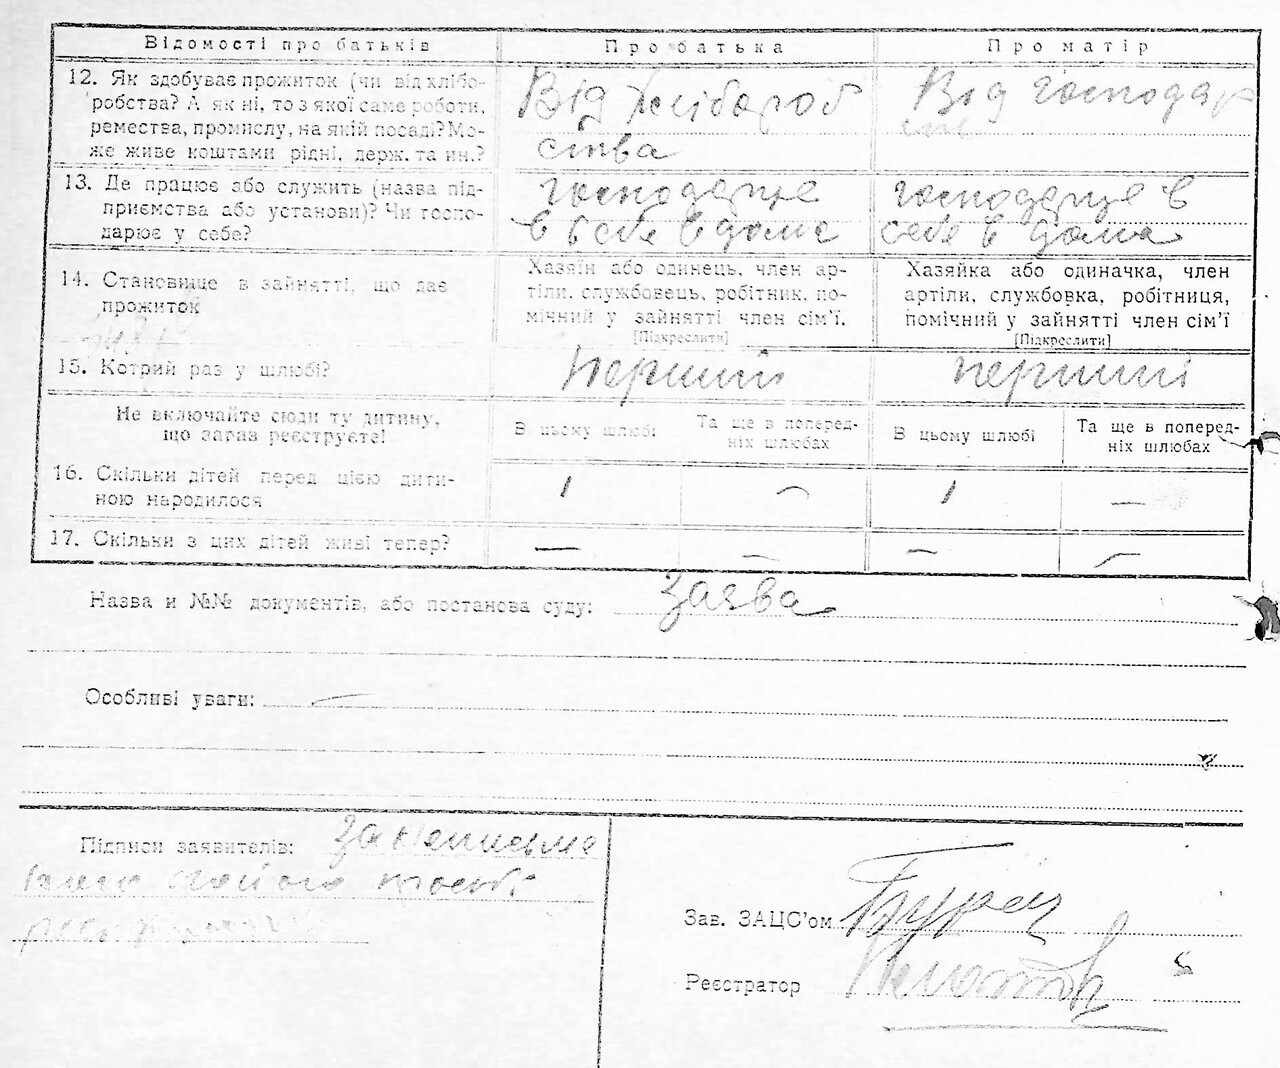 Відомості про батьків
Про батька
Про матір
12. Як здобуває прожиток (чи від хлібо-
робства? А як ні, то з якої саме роботи,
ремества, промислу, на якій посаді? Мо-
же живе коштами рідні, держ. та ин.?
Від хлібороб
ства
Від господар
ств
13. Де працює або служить (назва під-
приємства або установи)? Чи госпо-
дарює у себе?
господарце
в себе в дома
господарце в
себе в дома
14. Становище в зайнятті, що дає
прожиток
Хазяїн або одинець, член ар-
тіли, службовець, робітник, по-
мічний у зайнятті член сім'ї.
[Підкреслити]
Хазяйка або одиначка, член
артіли, службовка, робітниця,
помічний у зайнятті член сім'ї
[Підкреслити]
15. Котрий раз у шлюбі?
перший
перший
Не включайте сюди ту дитину,
що зараз реєструєте!
В цьому шлюбі
Та ще в поперед-
ніх шлюбах
В цьому шлюбі
Та ще в поперед-
ніх шлюбах
16. Скільки дітей перед цією дити-
ною народилося
1
—
1
—
17. Скільки з цих дітей живі тепер?
—
—
—
—
Назва и №№ документів, або постанова суду: заява
Особливі уваги: —
Підписи заявителів: За неписьме
Зав. ЗАЦС'ом
Реєстратор